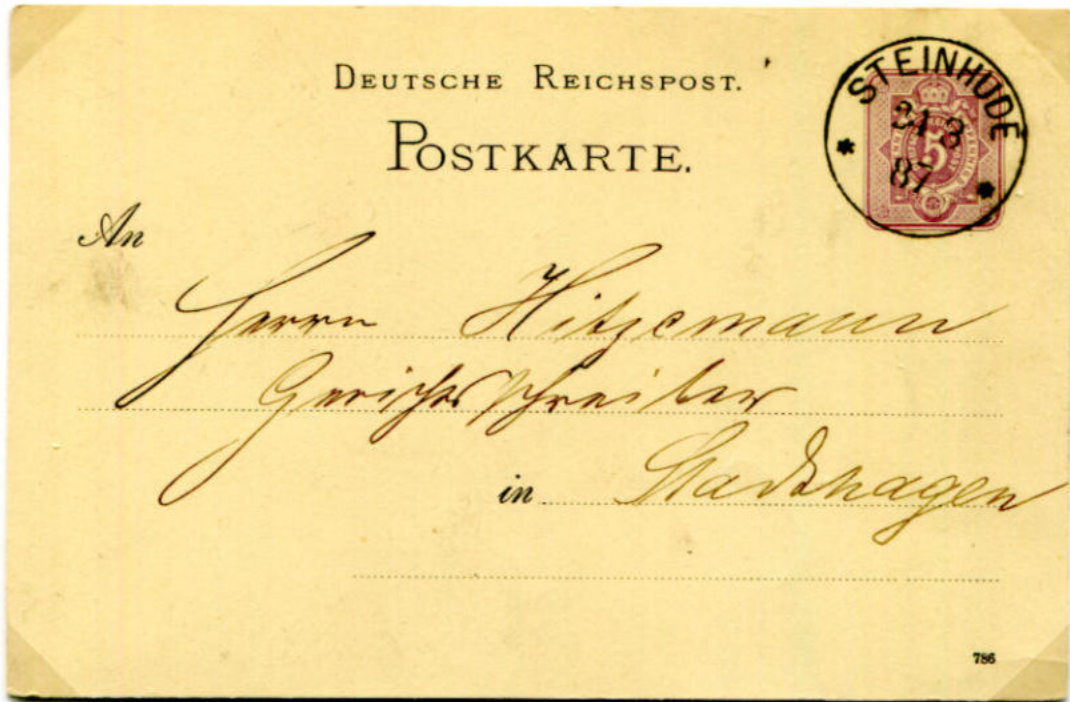 DEUTSCHE REICHSPOST.
POSTKARTE.
STEINHUDE
21 3
87
5
An
Herrn Hitzemann
Gerichtsschreiber
in Stadthagen
786